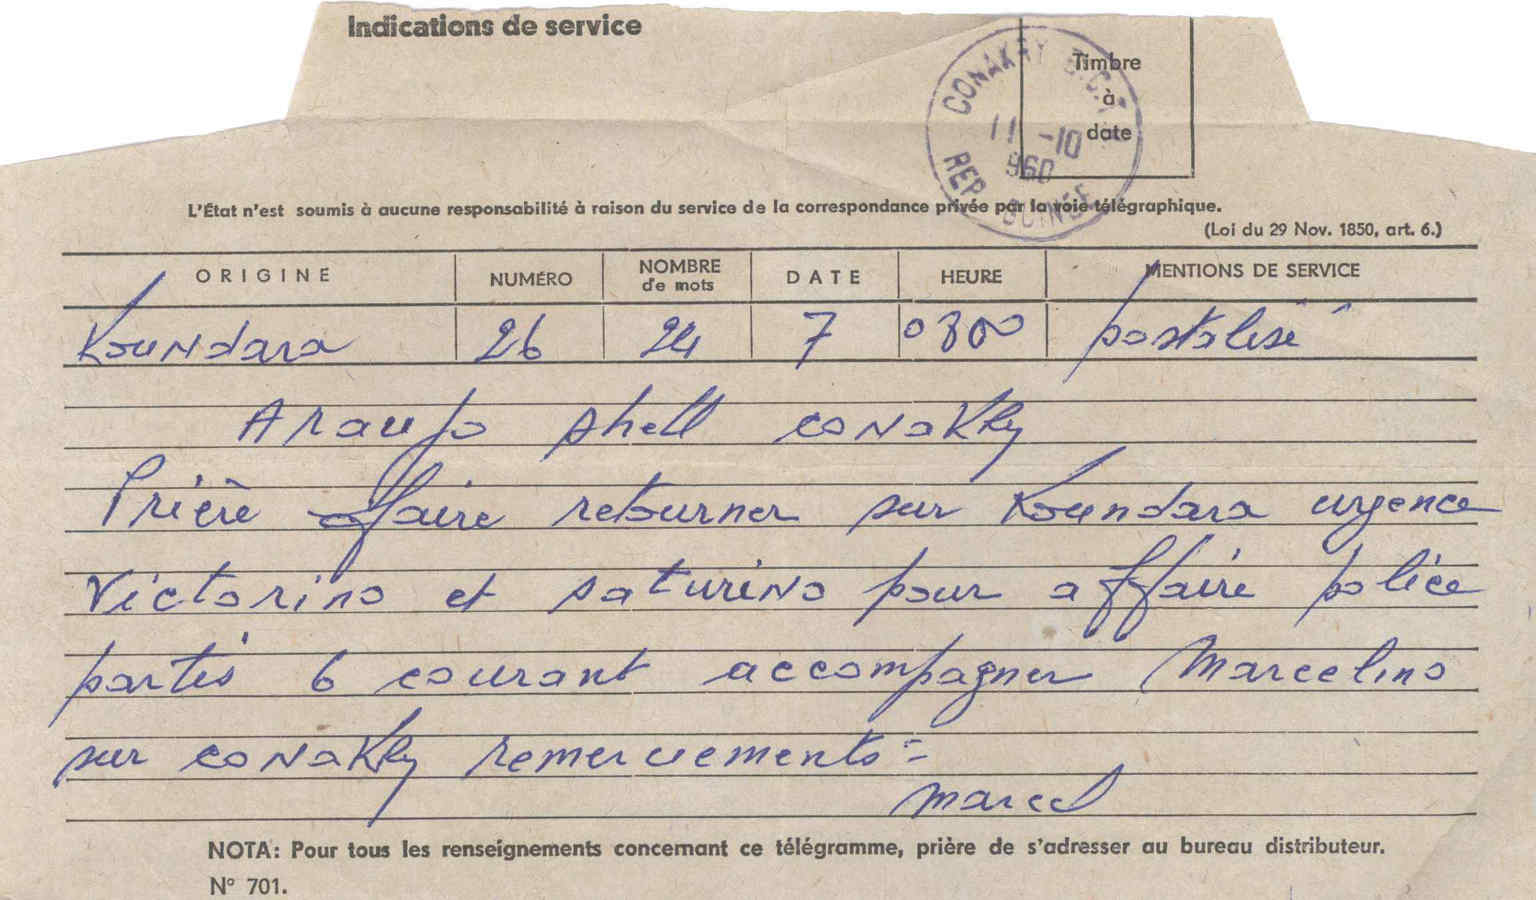 Indications de service
Timbre
à
date
CONAKRY
11 -10
960
REP GUINÉE
L'État n'est soumis à aucune responsabilité à raison du service de la correspondance privée par la voie télégraphique.
(Loi du 29 Nov. 1850, art. 6.)
ORIGINE NUMÉRO NOMBRE d'e mots DATE HEURE MENTIONS DE SERVICE
Koundara 26 24 7 0800 postalisé
Araujo shell conakry
Prière faire retourner sur Koundara urgence
Victorino et saturino pour affaire police
partis 6 courant accompagner Marcelino
sur conakry remerciements =
marcel
NOTA: Pour tous les renseignements concernant ce télégramme, prière de s'adresser au bureau distributeur.
N° 701.